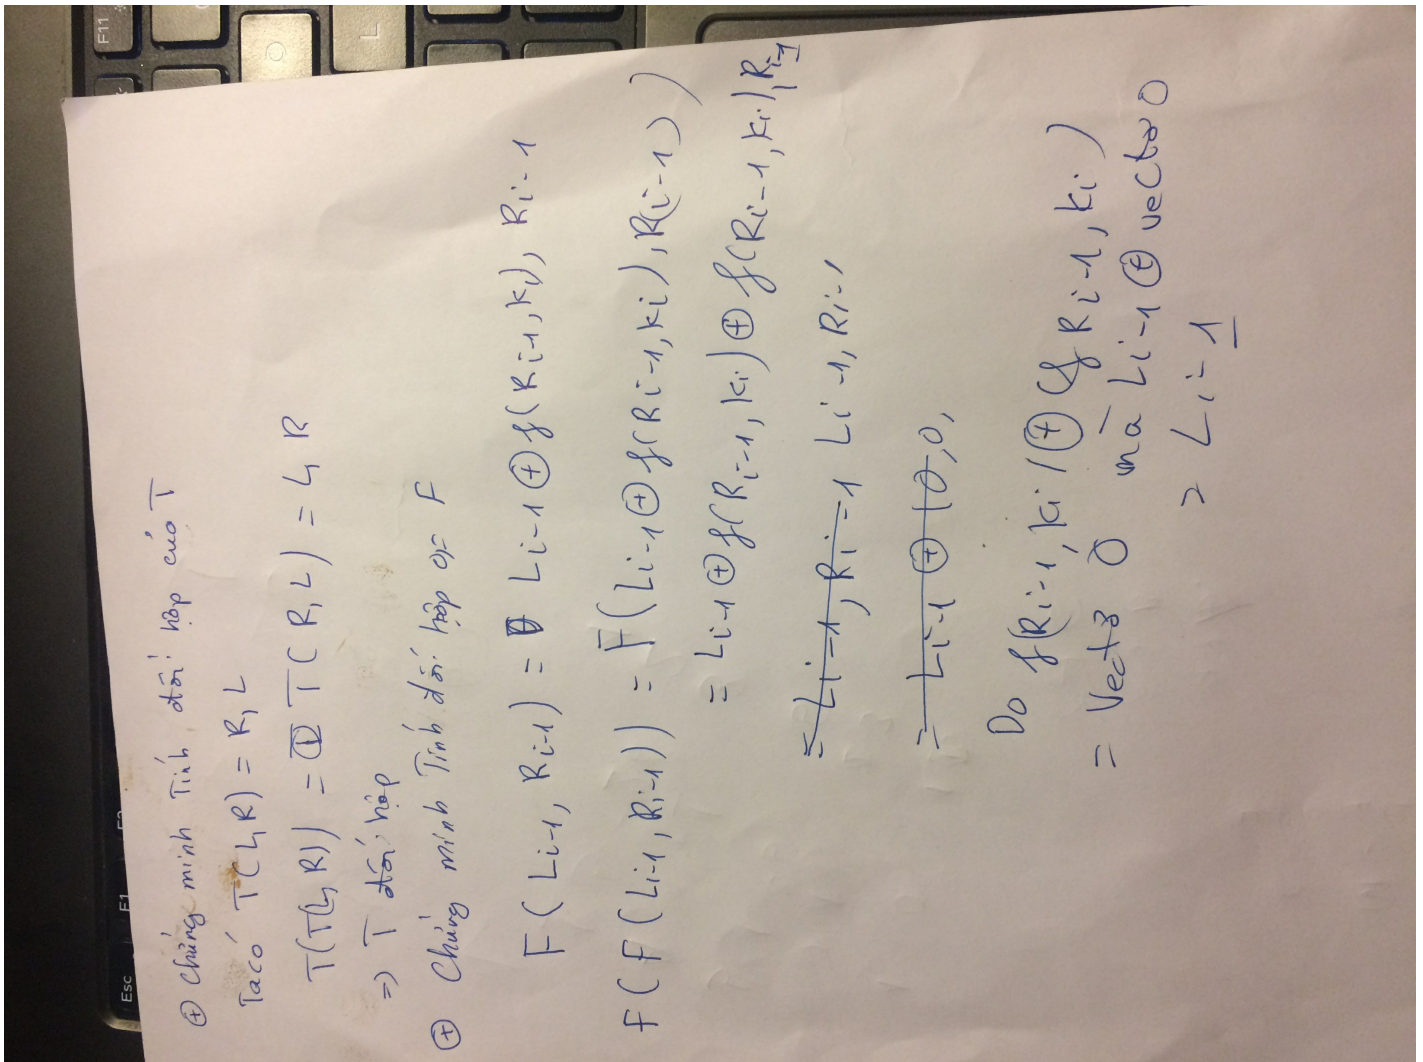 ⊕ Chứng minh Tính đối hợp của T
Ta có T(L,R) = R,L
T(T(L,R)) = T(R,L) = L,R
=) T đối hợp
⊕ Chứng minh Tính đối hợp of F
F(Li-1, Ri-1) = Li-1 ⊕ f(Ri-1, ki), Ri-1
F(F(Li-1, Ri-1)) = F(Li-1 ⊕ f(Ri-1, ki), R(i-1))
= Li-1 ⊕ f(Ri-1, ki) ⊕ f(Ri-1, ki), Ri-1
= Li-1, Ri-1 Li-1, Ri-1
= Li-1 ⊕ 10,0,
Do f(Ri-1, ki) ⊕ (f Ri-1, ki)
= Vectơ 0 mà Li-1 ⊕ vectơ 0
= Li-1
Esc
F1
F2
F11
O
L